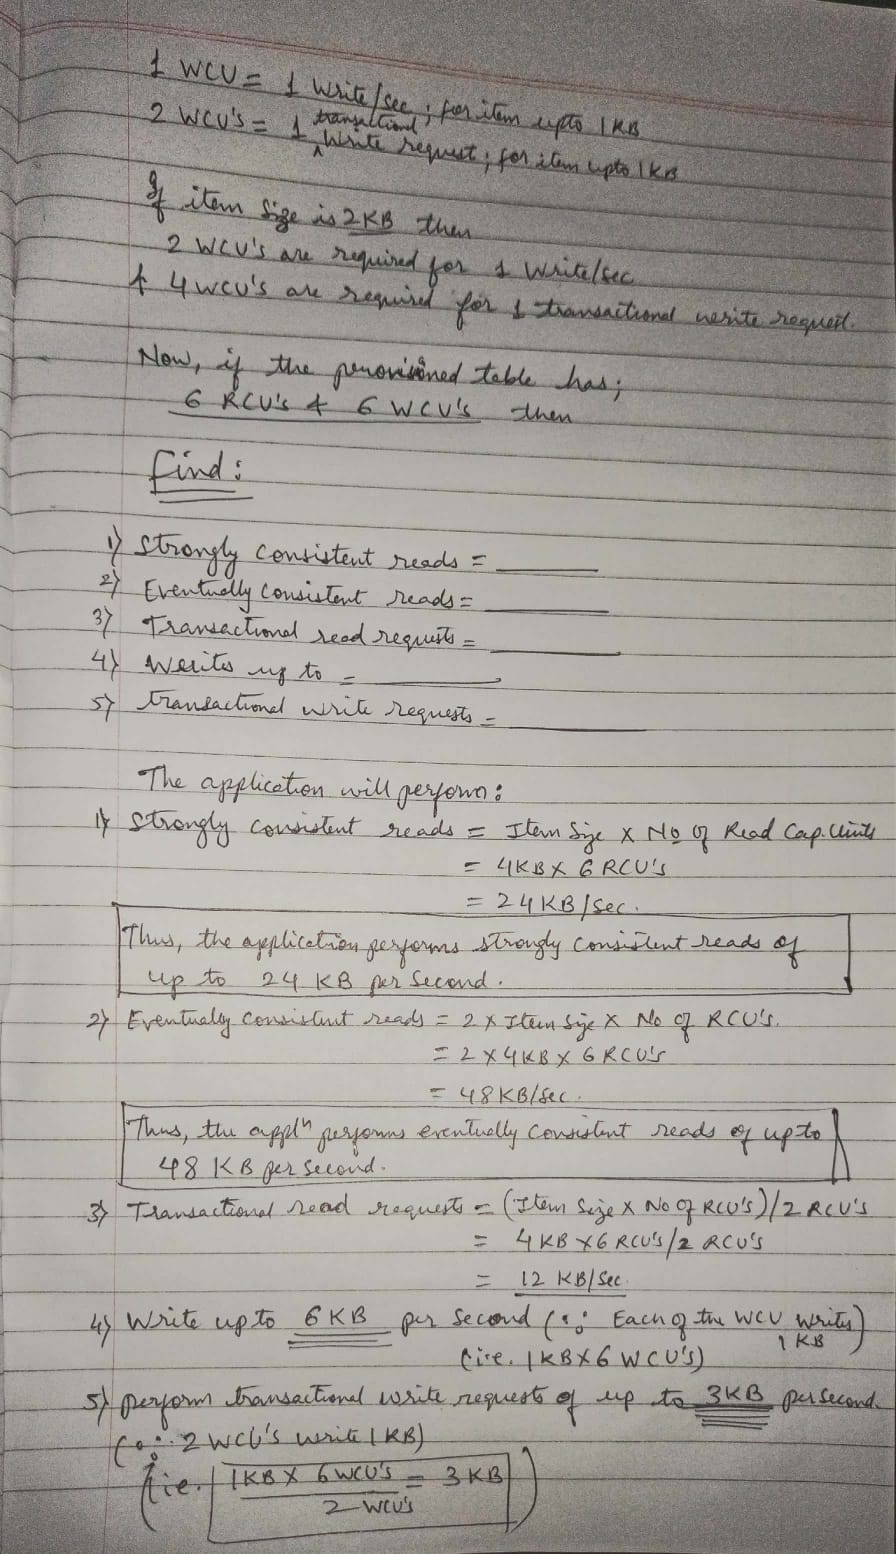 1 WCU = 1 Write/sec ; for item upto 1KB
2 WCU's = 1 transactional Write request ; for item upto 1KB
If item Size is 2KB then
2 WCU's are required for 1 Write/sec
& 4 WCU's are required for 1 transactional write request.
Now, if the provisioned table has ;
6 RCU's & 6 WCU's then
find :
1) Strongly consistent reads =
2) Eventually consistent reads =
3) Transactional read requests =
4) Writes up to =
5) transactional write requests =
The application will perform :
1) Strongly consistent reads = Item Size X No of Read Cap. Units
= 4KB X 6 RCU's
= 24 KB/Sec.
Thus, the application performs strongly consistent reads of
up to 24 KB per Second.
2) Eventually consistent reads = 2 X Item Size X No of RCU's.
= 2 X 4KB X 6 RCU's
= 48 KB/Sec.
Thus, the appln performs eventually consistent reads of upto
48 KB per second.
3) Transactional read requests = (Item Size X No of RCU's)/2 RCU's
= 4 KB X 6 RCU's/2 RCU's
= 12 KB/Sec.
4) Write up to 6 KB per Second (∵ Each of the WCU writes 1 KB)
(i.e. 1KB X 6 WCU's)
5) perform transactional write requests of up to 3KB per second.
(∵ 2 WCU's write 1 KB)
(i.e. 1KB X 6 WCU's / 2 WCU's = 3 KB)